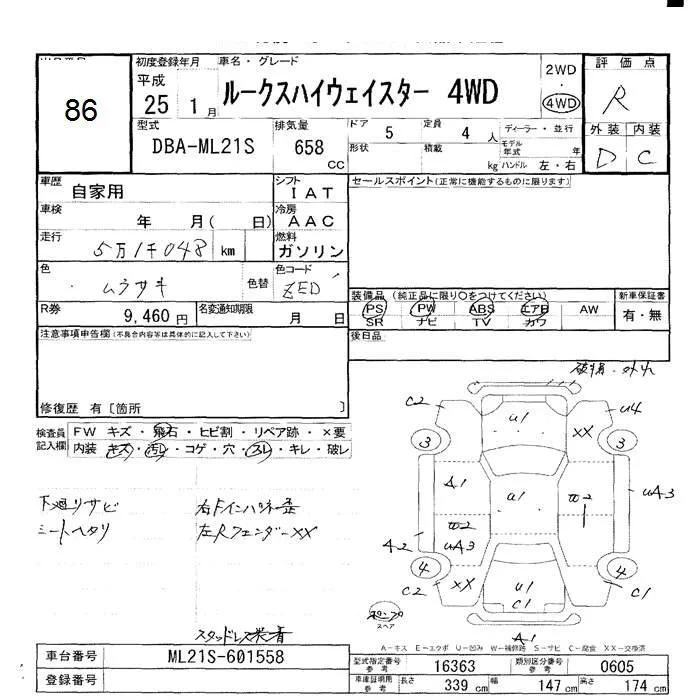 初度登録年月 車名・グレード 2WD 評価点
平成
86 25 1月 ルークスハイウェイスター 4WD ・ 4WD R
型式 排気量 ドア 5 定員 4人 ディーラー・並行 外装 内装
DBA-ML21S 658 CC 形状 積載 kg モデル年式 年 D C
ハンドル 左・右
車歴 自家用 シフト IAT セールスポイント(正常に機能するものに限ります)
車検 年 月( 日) 冷房 AAC
走行 5万1千048 km 燃料 ガソリン
色 ムラサキ 色替 色コード ZED
R券 9,460円 名変通知期限 月 日
装備品 (純正品に限り○をつけてください) 新車保証書
PS PW ABS エアB AW 有・無
SR ナビ TV カワ
注意事項申告欄(不具合内容等は具体的に記入して下さい) 後日品
修復歴 有〔箇所 〕
検査員記入欄 FW キズ・飛石・ヒビ割・リペア跡・×要
内装 キズ・汚レ・コゲ・穴・スレ・キレ・破レ
下廻りサビ
シートヘタリ
左Rフェンダー××
スタッドレス装着
C2 U1 U4
×× 3 3
A1 U1 UA3
UA3 A2
4 ×× U1 4
C2 C1 C1
スペア A1
A-キズ E-エクボ U-凹み W-補修跡 S-サビ C-腐食 XX-交換済
車台番号 ML21S-601558
登録番号
型式指定番号 参考 16363 類別区分番号 参考 0605
車庫証明用 参考 長さ 339 cm 幅 147 cm 高さ 174 cm